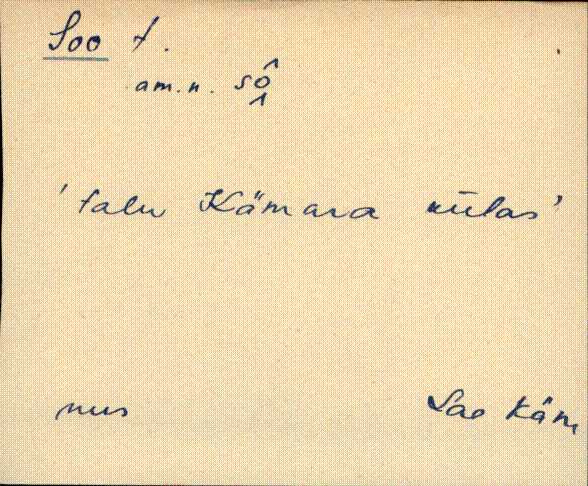 Soo t.
am.n. sô̭
'talu Kämara külas'
nus
Sae Käm